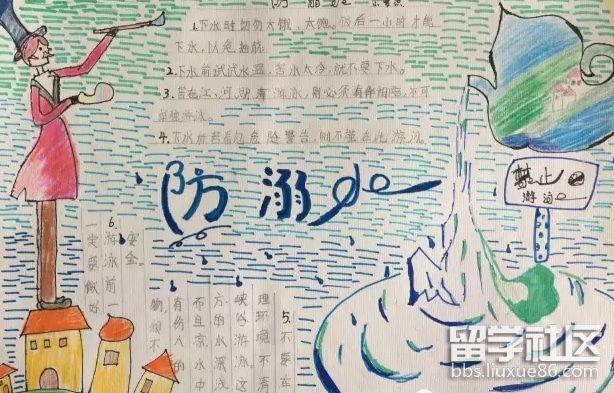 防溺水
1.下水时切勿太饿、太饱。饭后一小时才能
下水，以免抽筋。
2.下水前试试水温，若水太冷，就不要下水。
3.若在江、河、湖、海游泳，则必须有伴相陪，不可
单独游泳。
4.下水前若看见危险警告，则不能在此游泳。
防溺水
禁止
游泳
5.不要在
理环境不清
峡谷游泳。这
方的水深浅
而且凉水中
有伤人的
物，很不
安全。
6.游泳前一
定要做好
留学社区
bbs.liuxue86.com